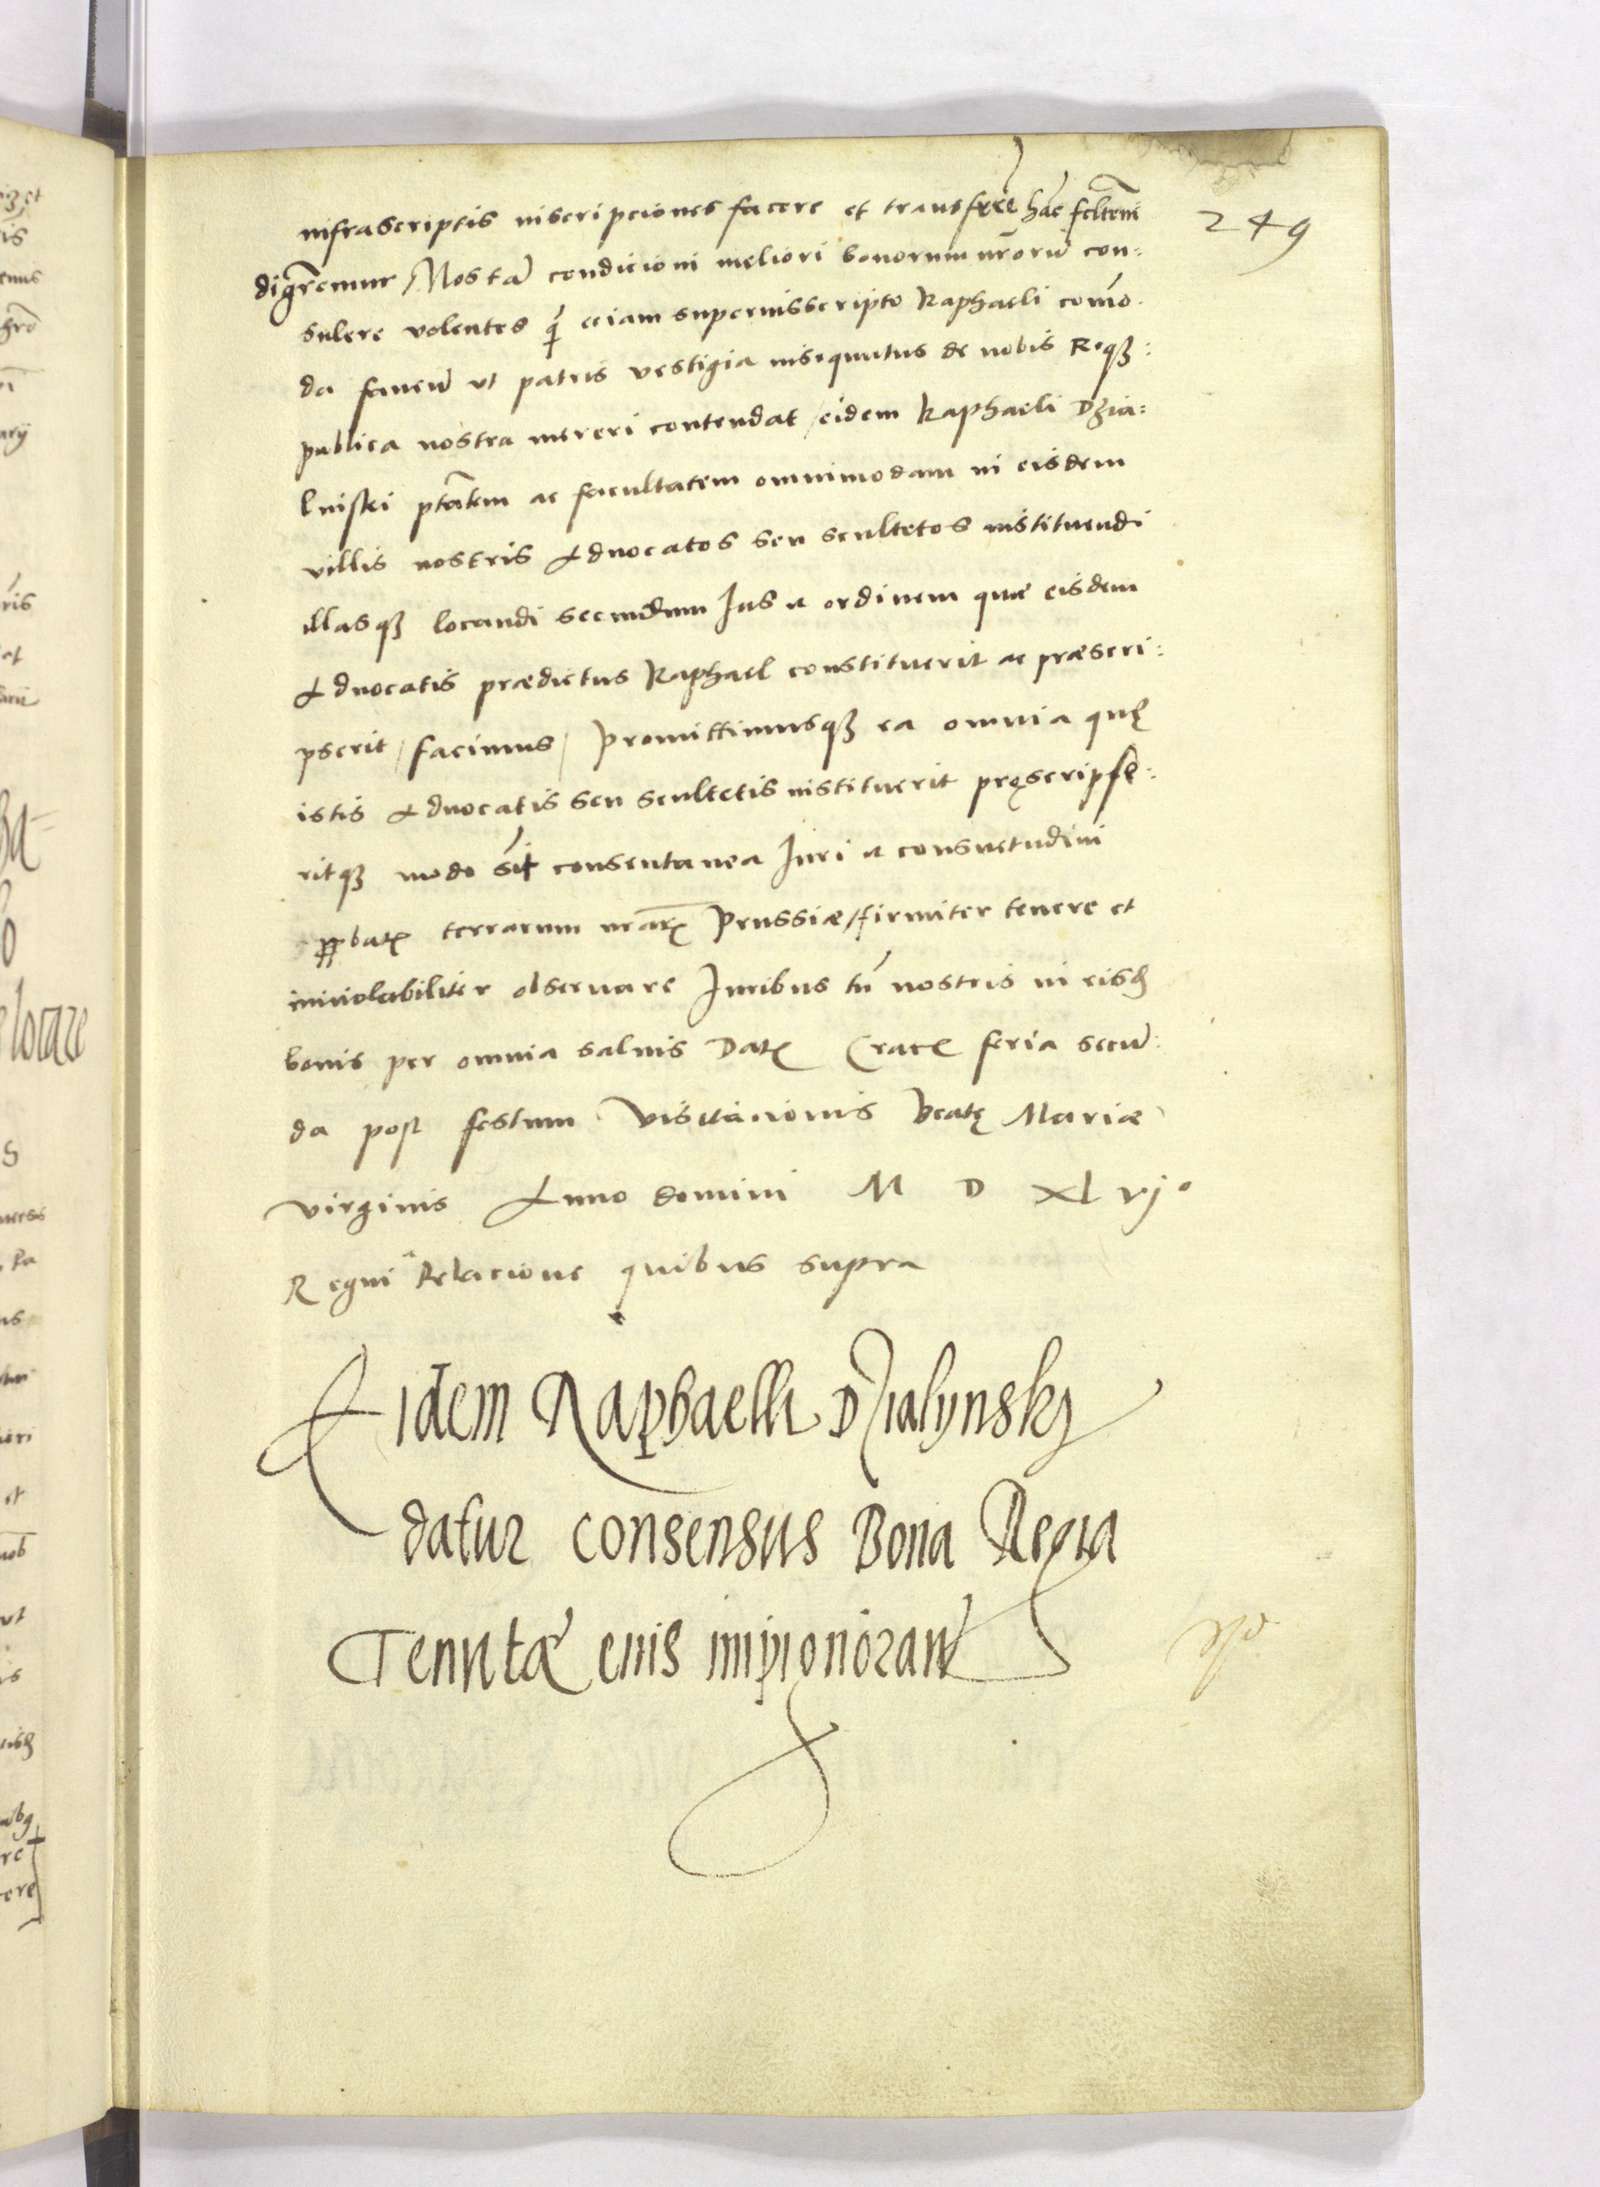 249
infrascriptis inscripciones facere et transfree hac fcltem
digremur / Nos tam condicioni meliori bonorum nrorum con:
sulere volentes q eciam superinsscripto Raphaeli como
da faueum vt patris vestigia insequutus de nobis Reqz:
publica nostra mereri contendat / eidem Raphaeli Dzia:
lniskei ptatem ac facultatem omnimodam in eisdem
villis nostris Aduocatos seu scultetos instituendi
illasqz locandi secundum Ius et ordinem quae eisdem
Aduocatis praedictus Raphael constituerit ac praescri:
pserit / facimus / Promittimusqz ea omnia quę
istis Aduocatis seu scultetis instituerit pręscripse:
ritqz modo sit consentanea Iuri et consuetudini
ppbatę terrarum nrarę Prussiae / firmiter tenere et
inuiolabiliter obseruare Iuribus tn nostris in eisd
bonis per omnia saluis Datę Cracę feria secun:
da post festum Visitacionis Beatę Mariae
virginis Anno domini M D XL vjo
Regni Relacione quibus supra
Eidem Raphaelli Dzialynskj
datur consensus Bona Regia
Tenutae enis impignorand